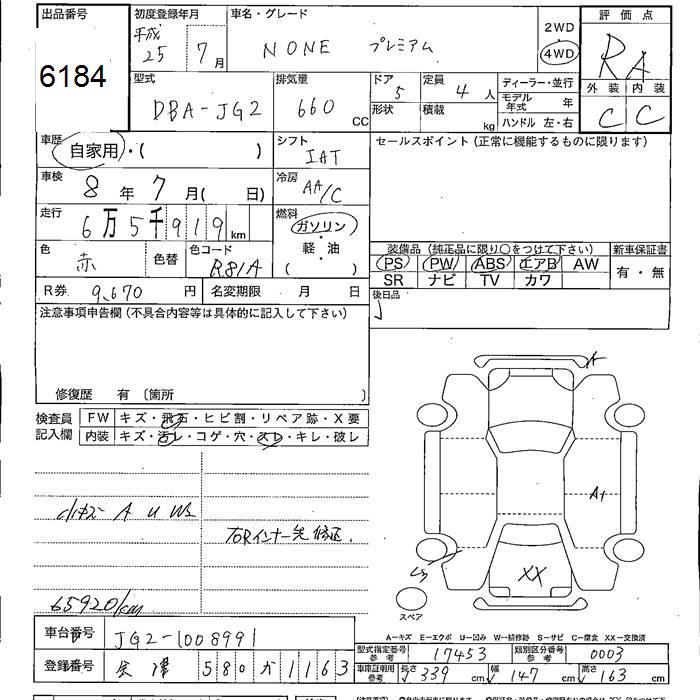 出品番号
6184
初度登録年月
平成
25 7月
車名・グレード
N ONE プレミアム
2WD
4WD
評価点
RA
外装 内装
C C
型式
DBA-JG2
排気量
660 CC
ドア
5
形状
定員
4 人
積載
kg
ディーラー・並行
モデル年式 年
ハンドル 左・右
車歴
自家用・( )
シフト
IAT
セールスポイント (正常に機能するものに限ります)
車検
8年 7月( 日)
冷房
AA/C
走行
6万5千919km
燃料
ガソリン
軽・油
( )
色
赤
色替
色コード
R81A
装備品 (純正品に限り○をつけて下さい)
PS PW ABS エアB AW
SR ナビ TV カワ
新車保証書
有・無
R券 9,670 円
名変期限 月 日
後日品
注意事項申告欄 (不具合内容等は具体的に記入して下さい)
修復歴 有 〔箇所 〕
検査員記入欄
FW キズ・飛石・ヒビ割・リペア跡・X要
内装 キズ・汚レ・コゲ・穴・スレ・キレ・破レ
小キズ A U WS
右Rインナー先修正.
65920km
A
A1
XX
スペア
A―キズ E―エクボ U―凹み W―補修跡 S―サビ C―腐食 XX―交換済
車台番号 JG2-1008991
登録番号 会津 580 か 1163
型式指定番号 参考 17453
類別区分番号 参考 0003
車庫証明用 参考
長さ 339 cm
幅 147 cm
高さ 163 cm